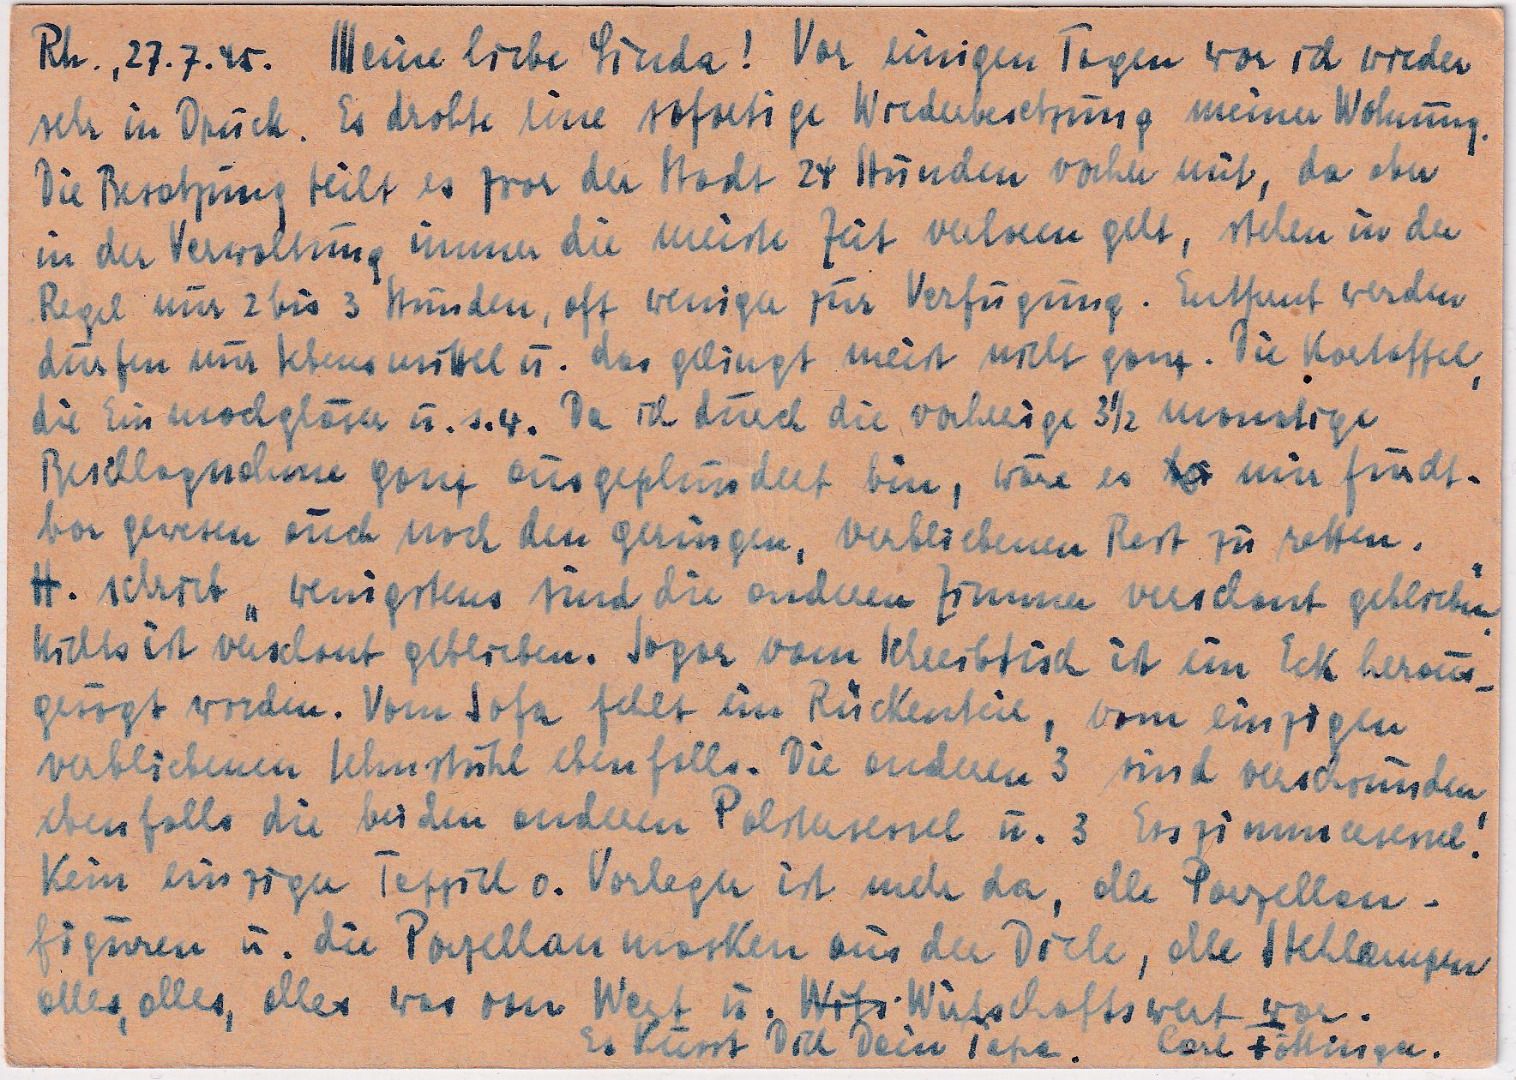 Rh., 27.7.45. Meine liebe Linda! Vor einigen Tagen war ich wieder
sehr in Druck. Es drohte eine sofortige Wiederbesetzung meiner Wohnung.
Die Besatzung teilt es zwar der Stadt 24 Stunden vorher mit, da aber
in der Verwaltung immer die meiste Zeit verloren geht, stehen in der
Regel nur 2 bis 3 Stunden, oft weniger zur Verfügung. Entfernt werden
dürfen nur Lebensmittel u. das gelingt meist nicht ganz. Die Kartoffel,
die Einmachgläser u.s.w. Da ich durch die vorherige 3 1/2 monatige
Beschlagnahme ganz ausgeplündert bin, wäre es mir furcht-
bar gewesen auch noch den geringen, verbliebenen Rest zu retten.
H. schrieb „wenigstens sind die anderen Zimmer verschont geblieben"
Nichts ist verschont geblieben. Sogar vom Schreibtisch ist ein Eck heraus-
gesägt worden. Vom Sofa fehlt ein Rückenteil, vom einzigen
verbliebenen Lehnstuhl ebenfalls. Die anderen 3 sind verschwunden
ebenfalls die beiden anderen Polstersessel u. 3 Esszimmersessel!
Kein einziger Teppich o. Vorleger ist mehr da, alle Porzellan-
figuren u. die Porzellanmasken aus der Diele, alle Stehlampen
alles, alles, alles was von Wert u. Wirtschaftswert war.
Es küsst Dich Dein Papa. Carl Föttinger.